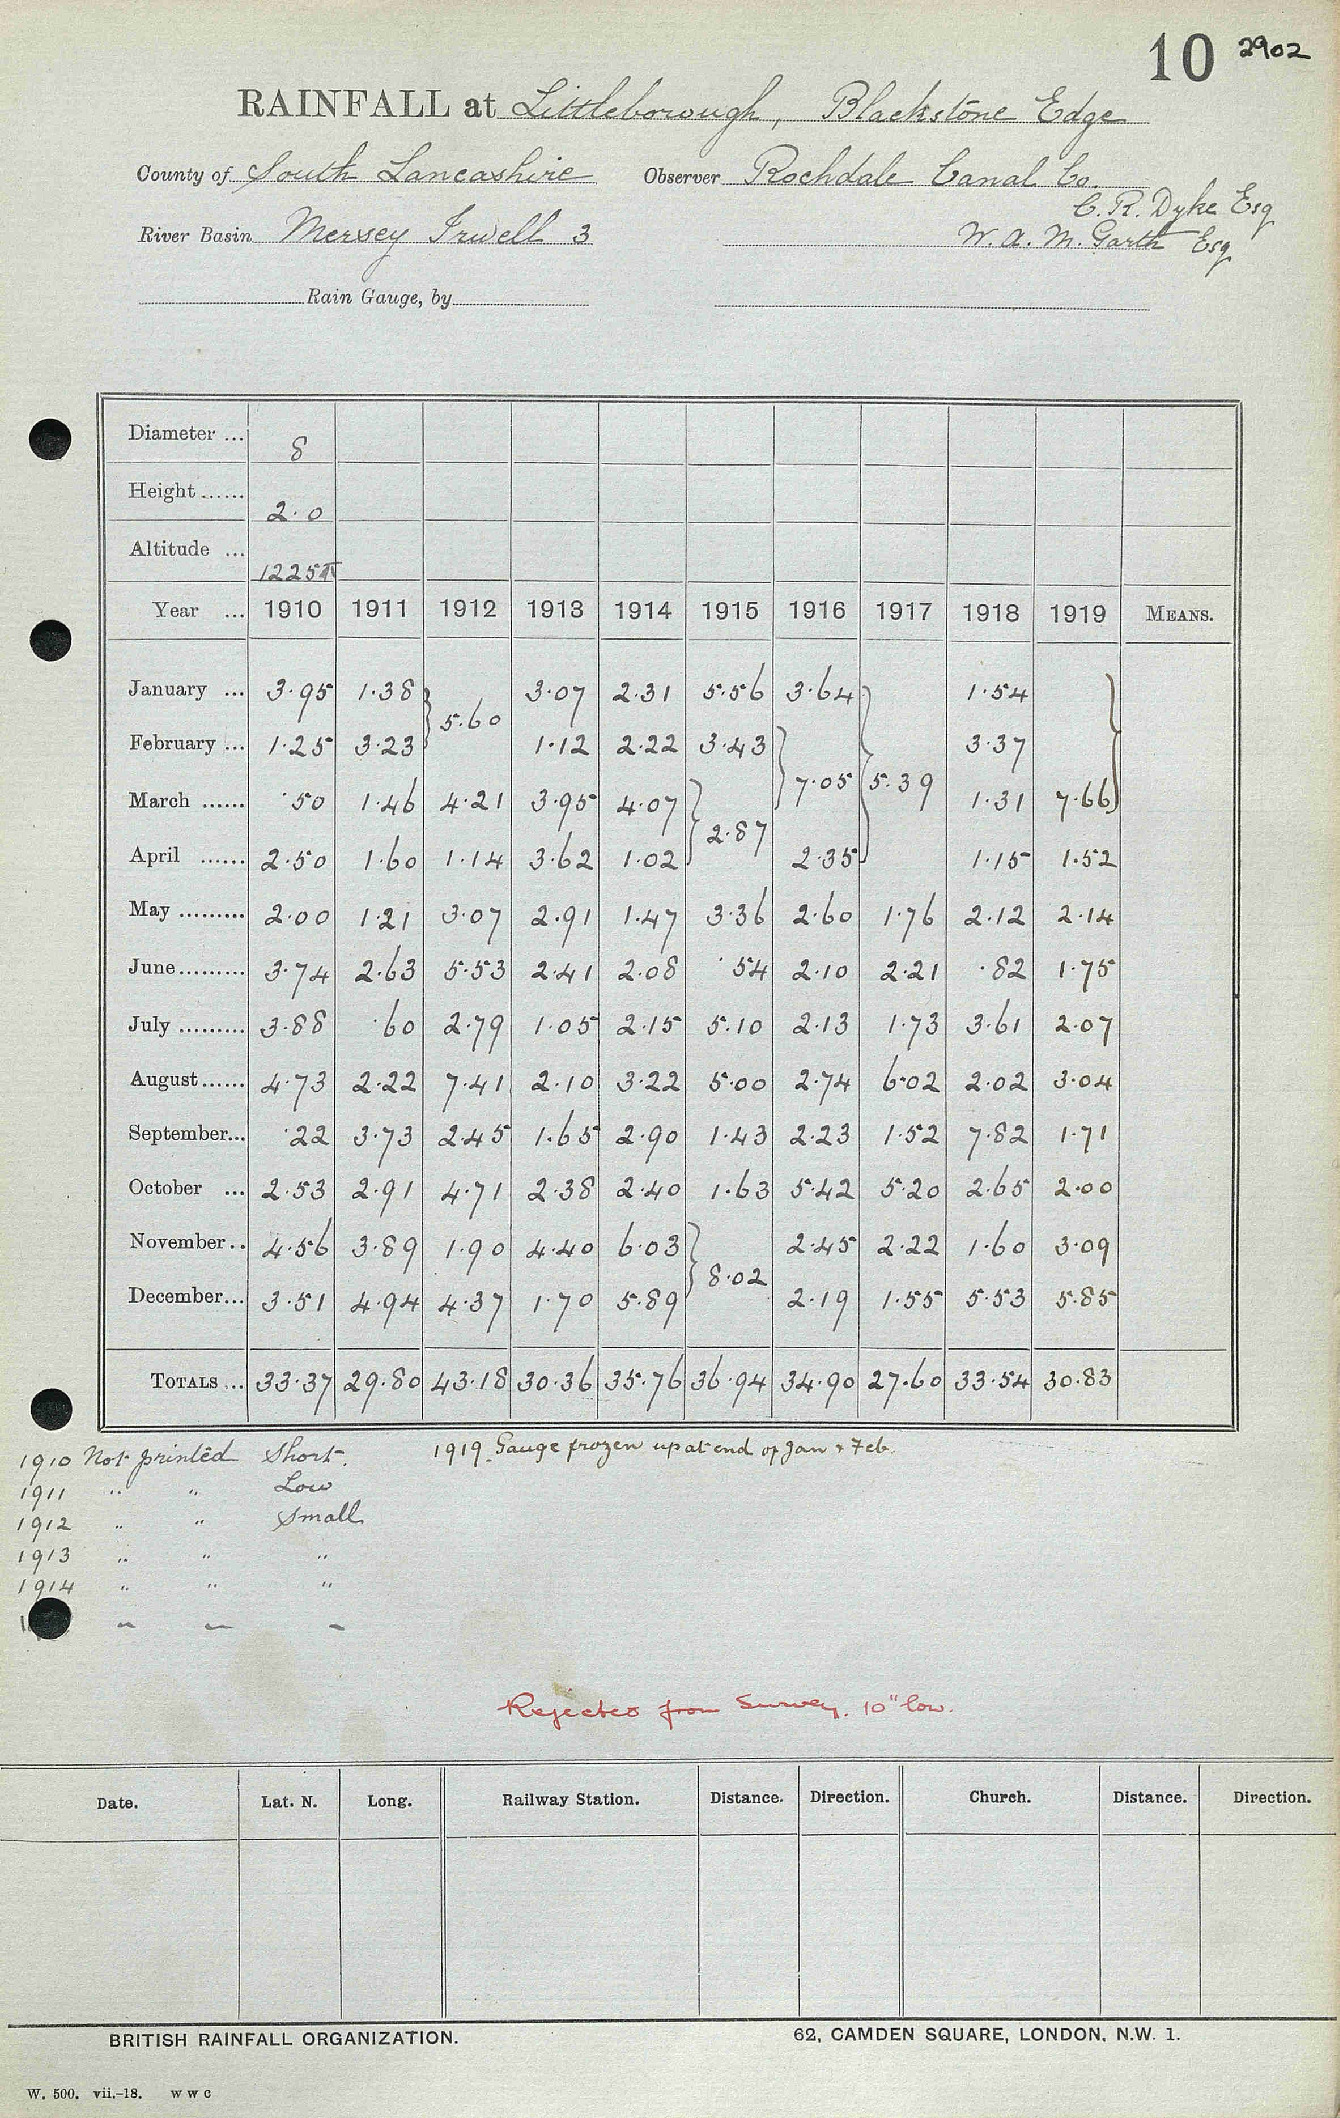 10 2902
RAINFALL at Littleborough, Blackstone Edge
County of South Lancashire Observer Rochdale Canal Co.
C. R. Dyke Esq
River Basin Mersey Irwell 3 W. A. M. Garth Esq
Rain Gauge, by
Diameter ... 8
Height ...... 2.0
Altitude ... 1225ft
Year ... 1910 1911 1912 1913 1914 1915 1916 1917 1918 1919 MEANS.
January ... 3.95 1.38 } 5.60 3.07 2.31 5.56 3.64 } 1.54 }
February ... 1.25 3.23 1.12 2.22 3.43 } 7.05 5.39 3.37
March ...... .50 1.46 4.21 3.95 4.07 } 2.87 1.31 7.66
April ...... 2.50 1.60 1.14 3.62 1.02 2.35 1.15 1.52
May ......... 2.00 1.21 3.07 2.91 1.47 3.36 2.60 1.76 2.12 2.14
June......... 3.74 2.63 5.53 2.41 2.08 .54 2.10 2.21 .82 1.75
July ......... 3.88 .60 2.79 1.05 2.15 5.10 2.13 1.73 3.61 2.07
August...... 4.73 2.22 7.41 2.10 3.22 5.00 2.74 6.02 2.02 3.04
September... .22 3.73 2.45 1.65 2.90 1.43 2.23 1.52 7.82 1.71
October ... 2.53 2.91 4.71 2.38 2.40 1.63 5.42 5.20 2.65 2.00
November.. 4.56 3.89 1.90 4.40 6.03 } 8.02 2.45 2.22 1.60 3.09
December... 3.51 4.94 4.37 1.70 5.89 2.19 1.55 5.53 5.85
TOTALS ... 33.37 29.80 43.18 30.36 35.76 36.94 34.90 27.60 33.54 30.83
1910 Not printed Short. 1919. Gauge frozen up at end of Jan & Feb.
1911 " " Low
1912 " " Small
1913 " " "
1914 " " "
" " "
Rejected from Survey. 10" low.
Date. Lat. N. Long. Railway Station. Distance. Direction. Church. Distance. Direction.
BRITISH RAINFALL ORGANIZATION. 62, CAMDEN SQUARE, LONDON, N.W. 1.
W. 500. vii.-18. W W C